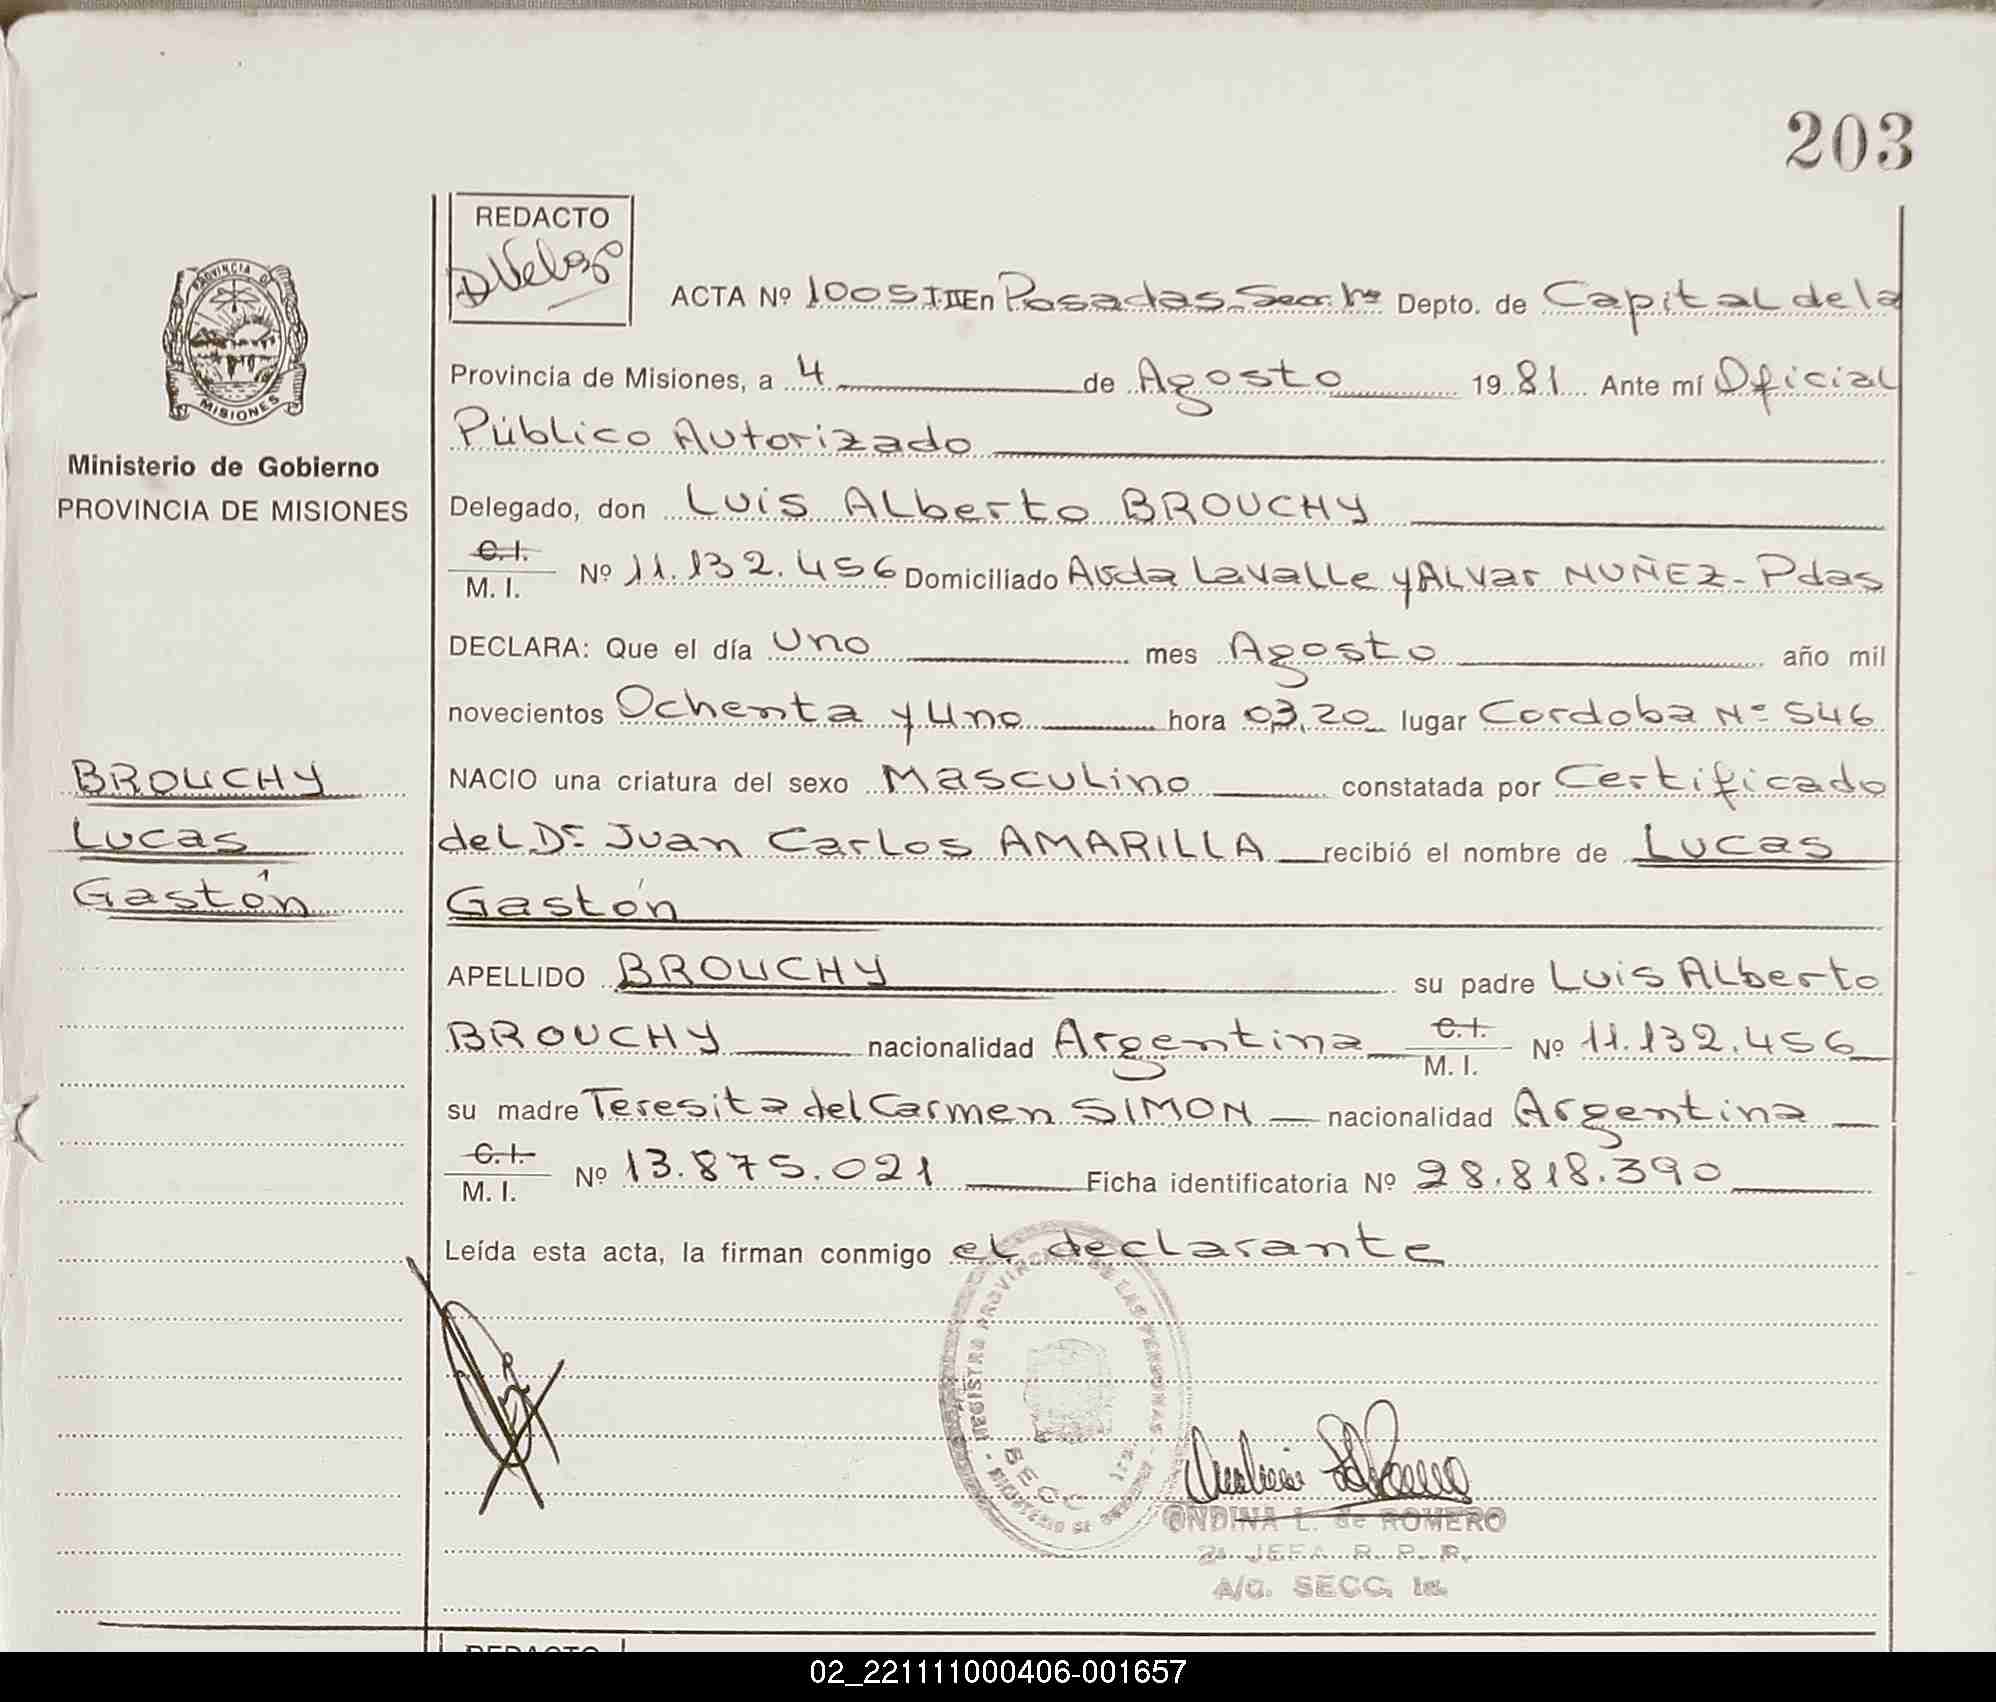 203
REDACTO
DVelozo
ACTA Nº 1005 T III En Posadas Secc. 1ra Depto. de Capital de la
PROVINCIA DE
MISIONES
Provincia de Misiones, a 4 de Agosto 1981 Ante mí Oficial
Público Autorizado
Ministerio de Gobierno
PROVINCIA DE MISIONES
Delegado, don Luis Alberto BROUCHY
C. I.
M. I. Nº 11.132.456 Domiciliado Avda Lavalle y Alvar NUÑEZ - Pdas
DECLARA: Que el día uno mes Agosto año mil
novecientos Ochenta y Uno hora 03,20 lugar Cordoba Nº 546
BROUCHY
Lucas
Gastón
NACIO una criatura del sexo Masculino constatada por Certificado
del Dr Juan Carlos AMARILLA recibió el nombre de Lucas
Gastón
APELLIDO BROUCHY su padre Luis Alberto
BROUCHY nacionalidad Argentina C. I. M. I. Nº 11.132.456
su madre Teresita del Carmen SIMON nacionalidad Argentina
C. I.
M. I. Nº 13.875.021 Ficha identificatoria Nº 28.818.390
Leída esta acta, la firman conmigo el declarante
REGISTRO PROVINCIAL DE LAS PERSONAS
SECC. 1ra.
MINISTERIO DE GOBIERNO
ONDINA L. de ROMERO
2a JEFA R. P. P.
A/C. SECC. 1a.
REDACTO
02_221111000406-001657